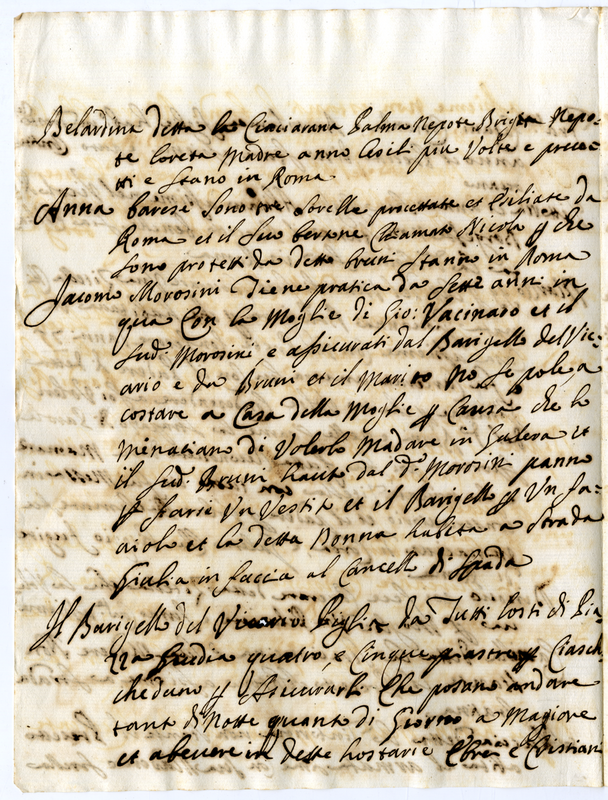 Belardina detta la Ciaciarana Palma Nepote Brigita Nepo=
te Loreta Madre anno più Volte e proces=
ti e Stano in Roma
Anna barese sono tre sorelle processate et Esiliate da
Roma et il suo bertone Chiamato Nicolo p che
sono protetti da detto bruni stanno in Roma
Jacomo Morosini Tiene pratica da sette anni in
qua Con la Moglie di Gio: Vacinaro et il
sud.º Morosini e assicurati dal Barigello del Vic=
ario e da Bruni et il Marito no se pole a
costare a Casa della Moglie p Causa che lo
menaciano di Volerlo Madare in Galera et
il sud.º Bruni hauto dal d.º Morosini panno
p farse Un Vestito et il Barigello p Un fa=
aiolo et la detta Donna habita a Strada
Giulia in faccia al Cancello di Spada
Il Barigello del Vicario Piglia da Tutti Costi di Pia=
zza Giudia quatro, e Cinque piastre p Ciasch
cheduno p Asicurarli Che posano andare
tant di Notte quanto di Giorno a Magiare
et a bevere in dette hostarie Ebrei e Cristian